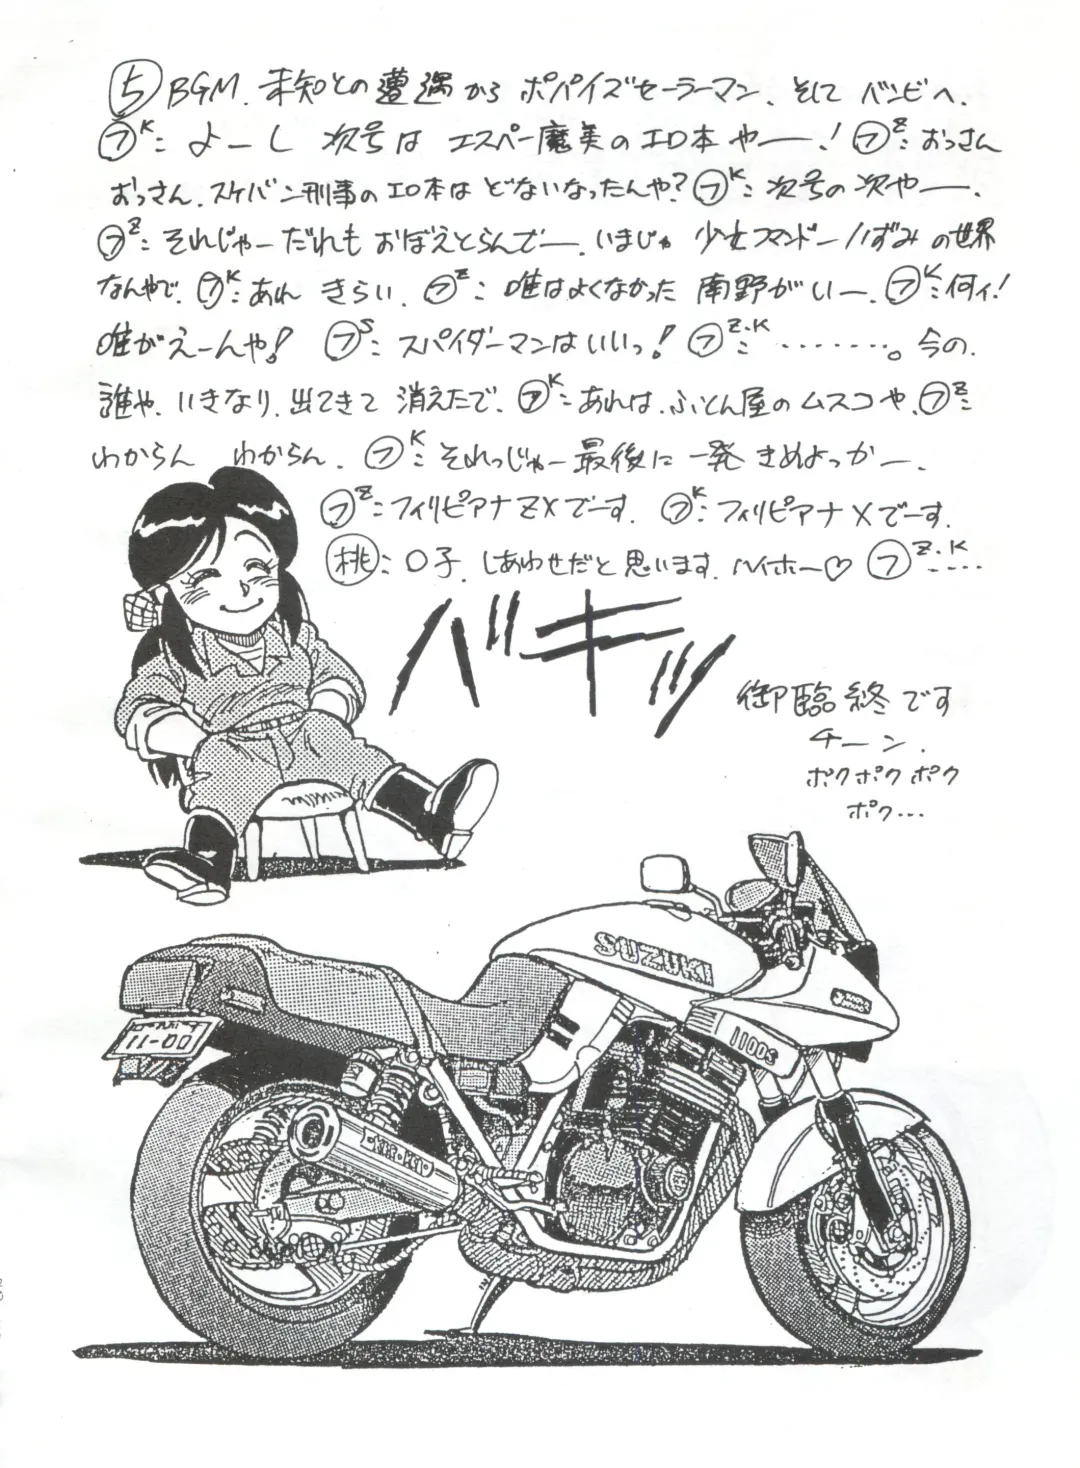 ⑤ BGM. 未知との遭遇から ポパイズセーラーマン、そして バンビへ.
フK: よーし 次号は エスパー魔美のエロ本 やー! フZ: おっさん
おっさん. スケバン刑事のエロ本は どないなったんや? フK: 次号の次やー.
フZ: それじゃーだれも おぼえとらんでー. いまじゃ 少女コマンドーいずみ の世界
なんやで. フK: あれ きらい. フZ: 唯はよくなかった 南野がいー. フK: 何ィ!
唯がえーんや! フS: スパイダーマンはいいっ! フZ.K: ・・・・・・・・。今の.
誰や. いきなり. 出てきて 消えたで. フK: あれは. ふとん屋の ムスコや. フZ:
わからん わからん. フK: それっじゃー最後に 一発 きめよっかー.
フZ: フィリピアナZXでーす. フK: フィリピアナXでーす.
桃: ロ子. しあわせだと思います. ハイホー♡ フZ.K ・・・・
バキッ
御臨終です
チーン.
ポクポクポク
ポク・・・
SUZUKI
1100S
11-00